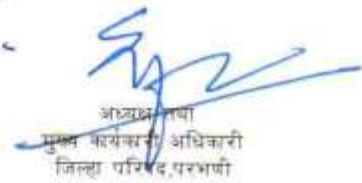 अध्यक्ष तथा
मुख्य कार्यकारी अधिकारी
जिल्हा परिषद,परभणी